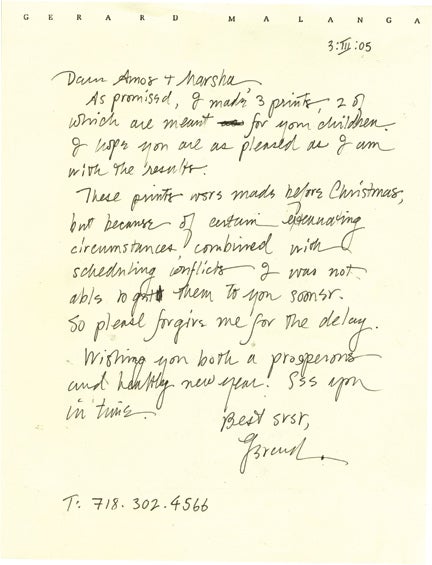 GERARD MALANGA
3·III·05
Dear Amos + Marsha
As promised, I made 3 prints, 2 of
which are meant for your children.
I hope you are as pleased as I am
with the results.
These prints were made before Christmas,
but because of certain extenuating
circumstances combined with
scheduling conflicts I was not
able to get them to you sooner.
So please forgive me for the delay.
Wishing you both a prosperous
and healthy new year! See you
in time.
Best ever,
Gerard.
T: 718.302.4566